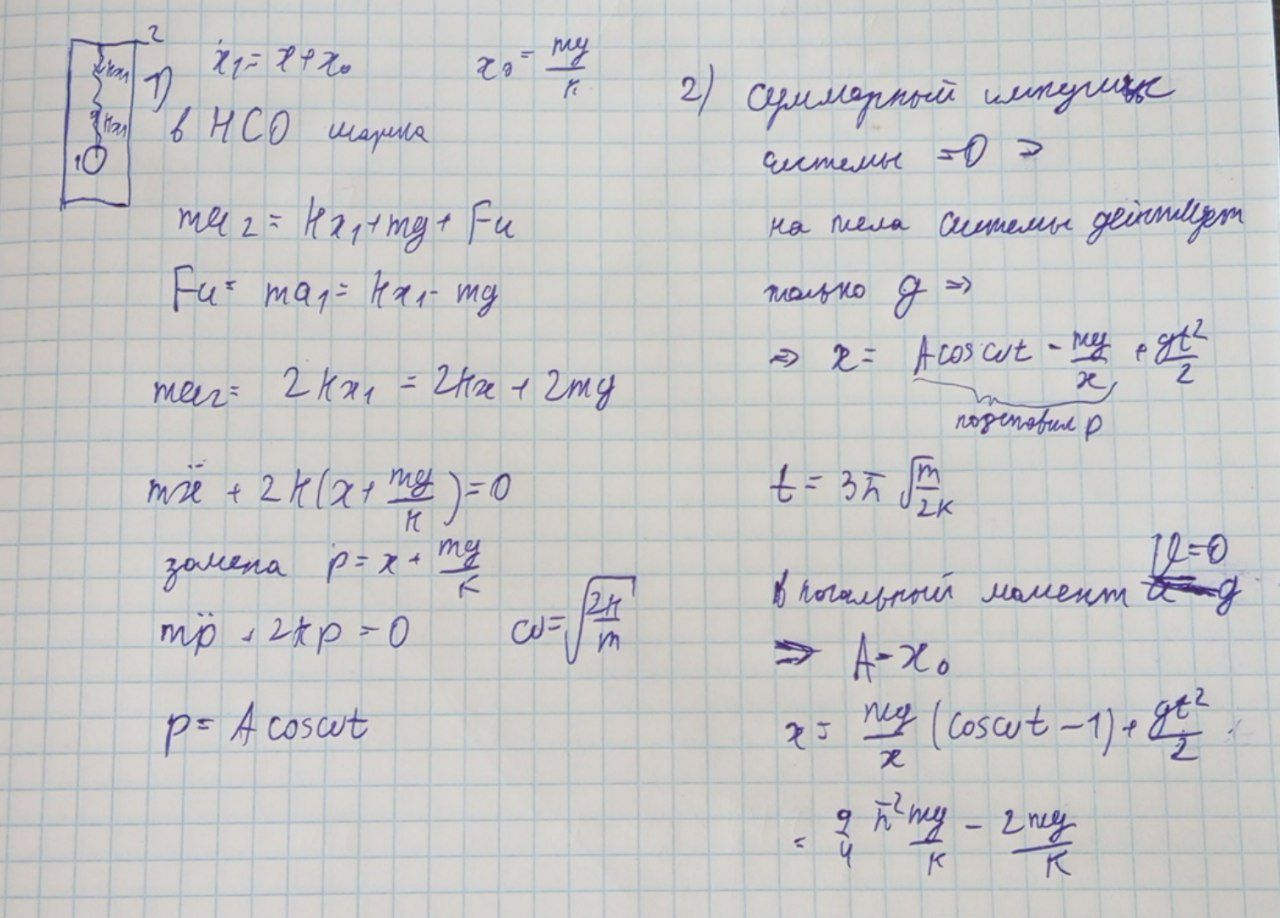 2
kx₁
kx₁
1
1) x₁ = x + x₀   x₀ = mg/k
в НСО шарика
ma₂ = kx₁ + mg + Fи
Fи = ma₁ = kx₁ - mg
ma₂ = 2kx₁ = 2kx + 2mg
mẍ + 2k(x + mg/k) = 0
замена p = x + mg/k
mp̈ + 2kp = 0   ω = √(2k/m)
p = A cos ωt
2) Суммарный импульс
системы = 0 ⇒
на тела системы действует
только g ⇒
⇒ x = A cos ωt - mg/x + gt²/2
подставил p
t = 3π √(m/2k)
V = 0
в начальный момент
⇒ A = x₀
x = mg/x (cos ωt - 1) + gt²/2
= 9/4 π² mg/k - 2mg/k